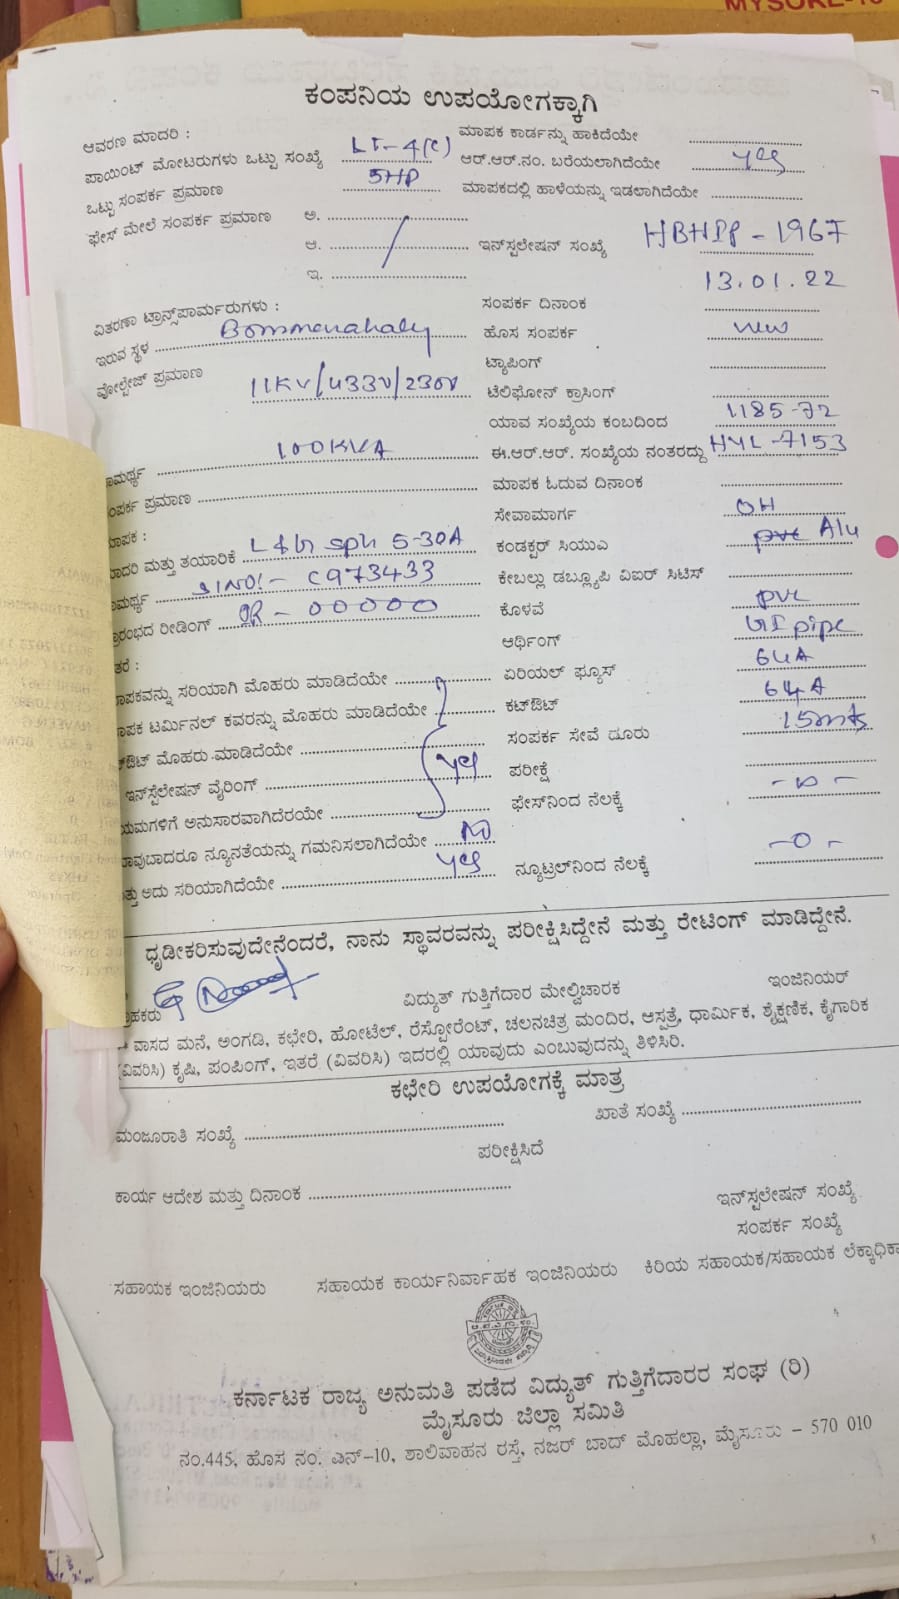 MYSORE-10
ಕಂಪನಿಯ ಉಪಯೋಗಕ್ಕಾಗಿ
ಆವರಣ ಮಾದರಿ : ಮಾಪಕ ಕಾರ್ಡನ್ನು ಹಾಕಿದೆಯೇ
ಪಾಯಿಂಟ್ ಮೋಟರುಗಳು ಒಟ್ಟು ಸಂಖ್ಯೆ LT-4(c) ಆರ್.ಆರ್.ನಂ. ಬರೆಯಲಾಗಿದೆಯೇ yes
ಒಟ್ಟು ಸಂಪರ್ಕ ಪ್ರಮಾಣ 5HP ಮಾಪಕದಲ್ಲಿ ಹಾಳೆಯನ್ನು ಇಡಲಾಗಿದೆಯೇ
ಫೇಸ್ ಮೇಲೆ ಸಂಪರ್ಕ ಪ್ರಮಾಣ ಅ.
ಆ. ಇನ್‌ಸ್ಟಲೇಷನ್ ಸಂಖ್ಯೆ HBHIP - 1967
ಇ.
ವಿತರಣಾ ಟ್ರಾನ್ಸ್‌ಪಾರ್ಮರುಗಳು : ಸಂಪರ್ಕ ದಿನಾಂಕ 13.01.22
ಇರುವ ಸ್ಥಳ Bommenahaly ಹೊಸ ಸಂಪರ್ಕ new
ವೋಲ್ಟೇಜ್ ಪ್ರಮಾಣ 11KV/433V/230V ಟ್ಯಾಪಿಂಗ್
ಟೆಲಿಫೋನ್ ಕ್ರಾಸಿಂಗ್
ಯಾವ ಸಂಖ್ಯೆಯ ಕಂಬದಿಂದ 1185-72
ಾಮರ್ಥ್ಯ 100KVA ಈ.ಆರ್.ಆರ್. ಸಂಖ್ಯೆಯ ನಂತರದ್ದು HYL-7153
ಂಪರ್ಕ ಪ್ರಮಾಣ ಮಾಪಕ ಓದುವ ದಿನಾಂಕ
ಾಪಕ : ಸೇವಾಮಾರ್ಗ OH
ಾದರಿ ಮತ್ತು ತಯಾರಿಕೆ L&G 5-30A ಕಂಡಕ್ಟರ್ ಸಿಯುಎ pvc Alu
ಾಮರ್ಥ್ಯ SlNO:- C973433 ಕೇಬಲ್ಲು ಡಬ್ಲ್ಯೂಪಿ ವಿಐರ್ ಸಿಟಿಸ್
್ರಾರಂಭದ ರೀಡಿಂಗ್ IR - 00000 ಕೊಳವೆ pvc
ತರೆ : ಆರ್ಥಿಂಗ್ GI pipe
ಾಪಕವನ್ನು ಸರಿಯಾಗಿ ಮೊಹರು ಮಾಡಿದೆಯೇ ಏರಿಯಲ್ ಫ್ಯೂಸ್ 64A
ಾಪಕ ಟರ್ಮಿನಲ್ ಕವರನ್ನು ಮೊಹರು ಮಾಡಿದೆಯೇ ಕಟ್‌ಔಟ್ 64A
ಟ್‌ಔಟ್ ಮೊಹರು ಮಾಡಿದೆಯೇ ಸಂಪರ್ಕ ಸೇವೆ ದೂರು 15mts
ಇನ್‌ಸ್ಟಲೇಷನ್ ವೈರಿಂಗ್ yes ಪರೀಕ್ಷೆ
ಯಮಗಳಿಗೆ ಅನುಸಾರವಾಗಿದೆರಯೇ ಫೇಸ್‌ನಿಂದ ನೆಲಕ್ಕೆ
ಾವುಬಾದರೂ ನ್ಯೂನತೆಯನ್ನು ಗಮನಿಸಲಾಗಿದೆಯೇ NO
ತ್ತು ಅದು ಸರಿಯಾಗಿದೆಯೇ yes ನ್ಯೂಟ್ರಲ್‌ನಿಂದ ನೆಲಕ್ಕೆ -0-
ಧೃಡೀಕರಿಸುವುದೇನೆಂದರೆ, ನಾನು ಸ್ಥಾವರವನ್ನು ಪರೀಕ್ಷಿಸಿದ್ದೇನೆ ಮತ್ತು ರೇಟಿಂಗ್ ಮಾಡಿದ್ದೇನೆ.
್ರಾಹಕರು ವಿದ್ಯುತ್ ಗುತ್ತಿಗೆದಾರ ಮೇಲ್ವಿಚಾರಕ ಇಂಜಿನಿಯರ್
ವಾಸದ ಮನೆ, ಅಂಗಡಿ, ಕಛೇರಿ, ಹೋಟೆಲ್, ರೆಸ್ಟೋರೆಂಟ್, ಚಲನಚಿತ್ರ ಮಂದಿರ, ಆಸ್ಪತ್ರೆ, ಧಾರ್ಮಿಕ, ಶೈಕ್ಷಣಿಕ, ಕೈಗಾರಿಕ
(ವಿವರಿಸಿ) ಕೃಷಿ, ಪಂಪಿಂಗ್, ಇತರೆ (ವಿವರಿಸಿ) ಇದರಲ್ಲಿ ಯಾವುದು ಎಂಬುವುದನ್ನು ತಿಳಿಸಿರಿ.
ಕಛೇರಿ ಉಪಯೋಗಕ್ಕೆ ಮಾತ್ರ
ಮಂಜೂರಾತಿ ಸಂಖ್ಯೆ ಖಾತೆ ಸಂಖ್ಯೆ
ಪರೀಕ್ಷಿಸಿದೆ
ಕಾರ್ಯ ಆದೇಶ ಮತ್ತು ದಿನಾಂಕ ಇನ್‌ಸ್ಟಲೇಷನ್ ಸಂಖ್ಯೆ
ಸಂಪರ್ಕ ಸಂಖ್ಯೆ
ಸಹಾಯಕ ಇಂಜಿನಿಯರು ಸಹಾಯಕ ಕಾರ್ಯನಿರ್ವಾಹಕ ಇಂಜಿನಿಯರು ಕಿರಿಯ ಸಹಾಯಕ/ಸಹಾಯಕ ಲೆಕ್ಕಾಧಿಕಾ
ಕರ್ನಾಟಕ ರಾಜ್ಯ ಅನುಮತಿ ಪಡೆದ ವಿದ್ಯುತ್ ಗುತ್ತಿಗೆದಾರರ ಸಂಘ (ರಿ)
ಮೈಸೂರು ಜಿಲ್ಲಾ ಸಮಿತಿ
ನಂ.445, ಹೊಸ ನಂ. ಎನ್-10, ಶಾಲಿವಾಹನ ರಸ್ತೆ, ನಜರ್ ಬಾದ್ ಮೊಹಲ್ಲಾ, ಮೈಸೂರು - 570 010